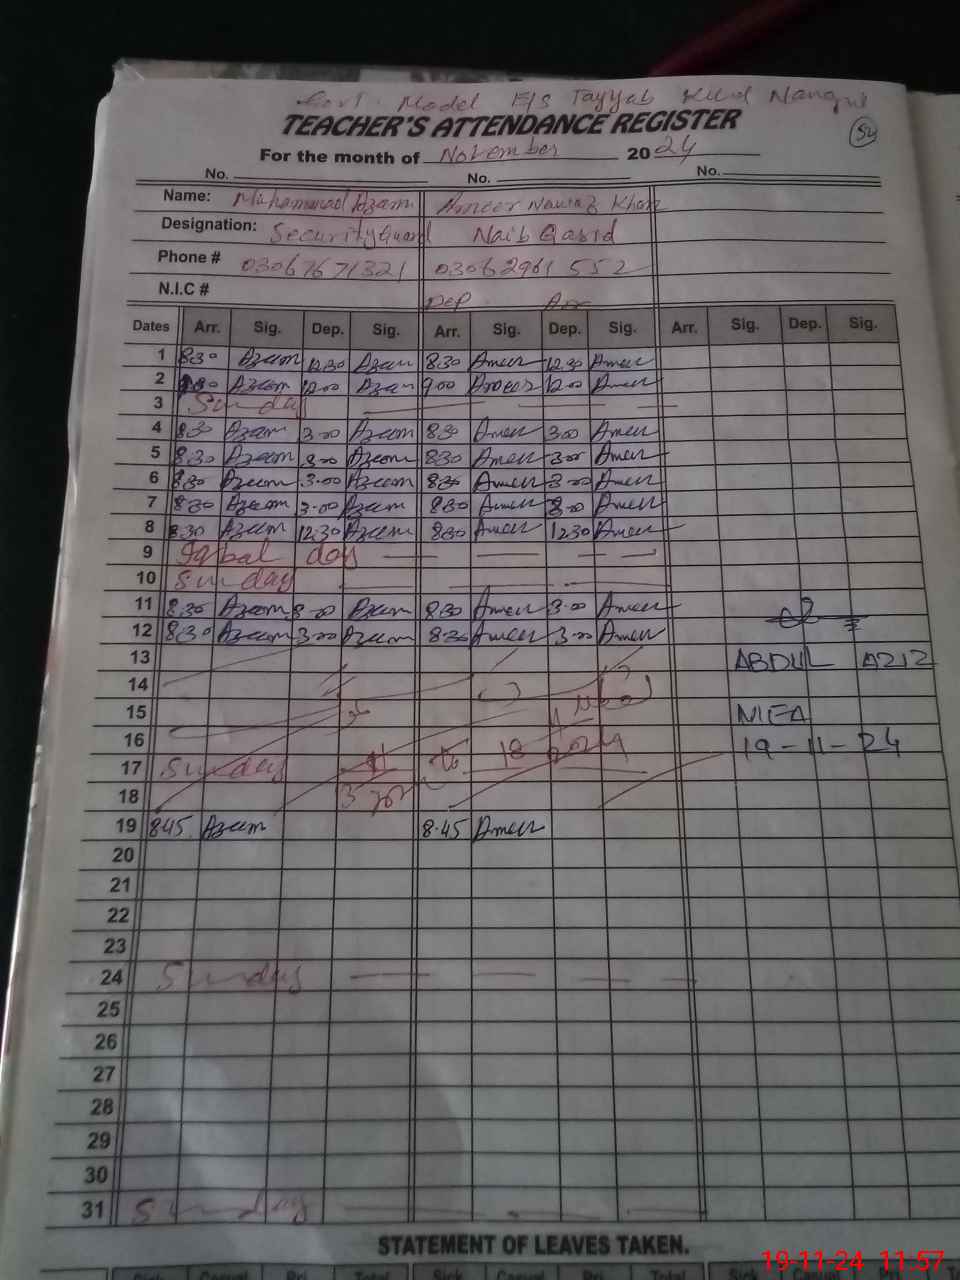 Govt. Model E/S Tayyab
TEACHER'S ATTENDANCE REGISTER
52
For the month of November 2024
No. No. No.
Name: Muhammad Azam Ameer Nawaz Khan
Designation: Security Guard Naib Qasid
Phone # 03067671321 03062961552
N.I.C #
DEP Arr
Dates Arr. Sig. Dep. Sig. Arr. Sig. Dep. Sig. Arr. Sig. Dep. Sig.
1 8:30 Azam 12:30 Azam 8:30 Ameer 12:30 Ameer
2 Azam 12:00 Azam 9:00 Ameer 12:00 Ameer
3 Sunday
4 8:30 Azam 3:00 Azam 8:30 Ameer 3:00 Ameer
5 8:30 Azam 3:00 Azam 8:30 Ameer 3:00 Ameer
6 8:30 Azam 3:00 Azam 8:30 Ameer 3:00 Ameer
7 8:30 Azam 3:00 Azam 8:30 Ameer 3:00 Ameer
8 8:30 Azam 12:30 Azam 8:30 Ameer 12:30 Ameer
9 Iqbal day
10 Sunday
11 8:30 Azam 3:00 Azam 8:30 Ameer 3:00 Ameer
12 8:30 Azam 3:00 Azam 8:30 Ameer 3:00 Ameer
13 ABDUL AZIZ
14
15 MEA
16 19-11-24
17 Sunday to 18 2024
18
19 8:45 Azam 8:45 Ameer
20
21
22
23
24 Sunday
25
26
27
28
29
30
31 Sunday
STATEMENT OF LEAVES TAKEN.
Sick Casual Pri. Total Sick Casual Pri. Total Sick
19-11-24 11:57